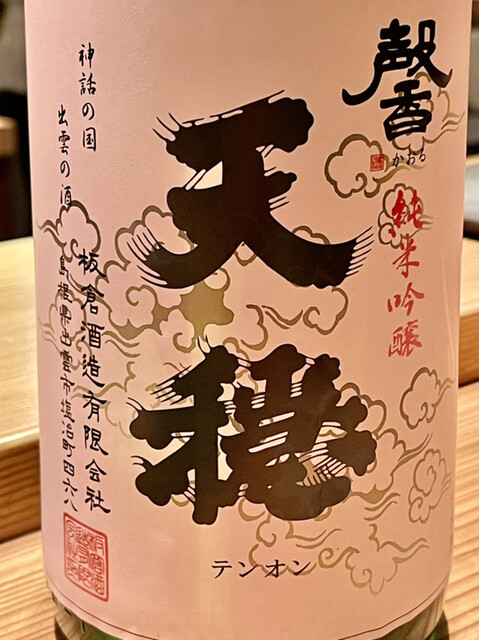 馨
かおる
純米吟醸
天穏
テンオン
神話の国
出雲の酒
板倉酒造有限会社
島根県出雲市塩冶町四六八